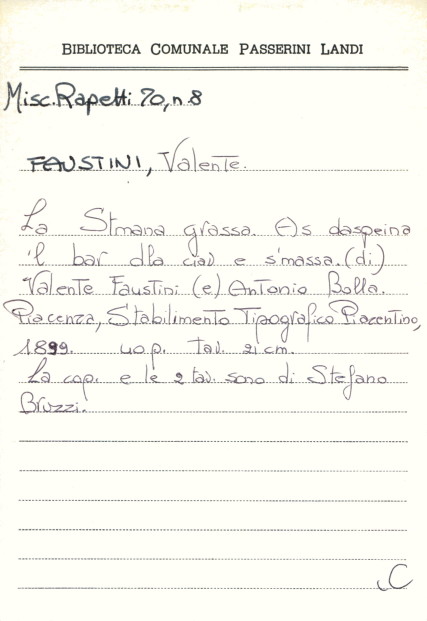 BIBLIOTECA COMUNALE PASSERINI LANDI
Misc. Rapetti 70, n 8
FAUSTINI, Valente.
La Stmana grassa. (-)s daspeina
'l bar dla ciav e s'massa. (di)
Valente Faustini (e) Antonio Bolla.
Piacenza, Stabilimento Tipografico Piacentino,
1899. 40 p. Tav. 21 cm.
La cop. e le 2 tav. sono di Stefano
Bruzzi.
C